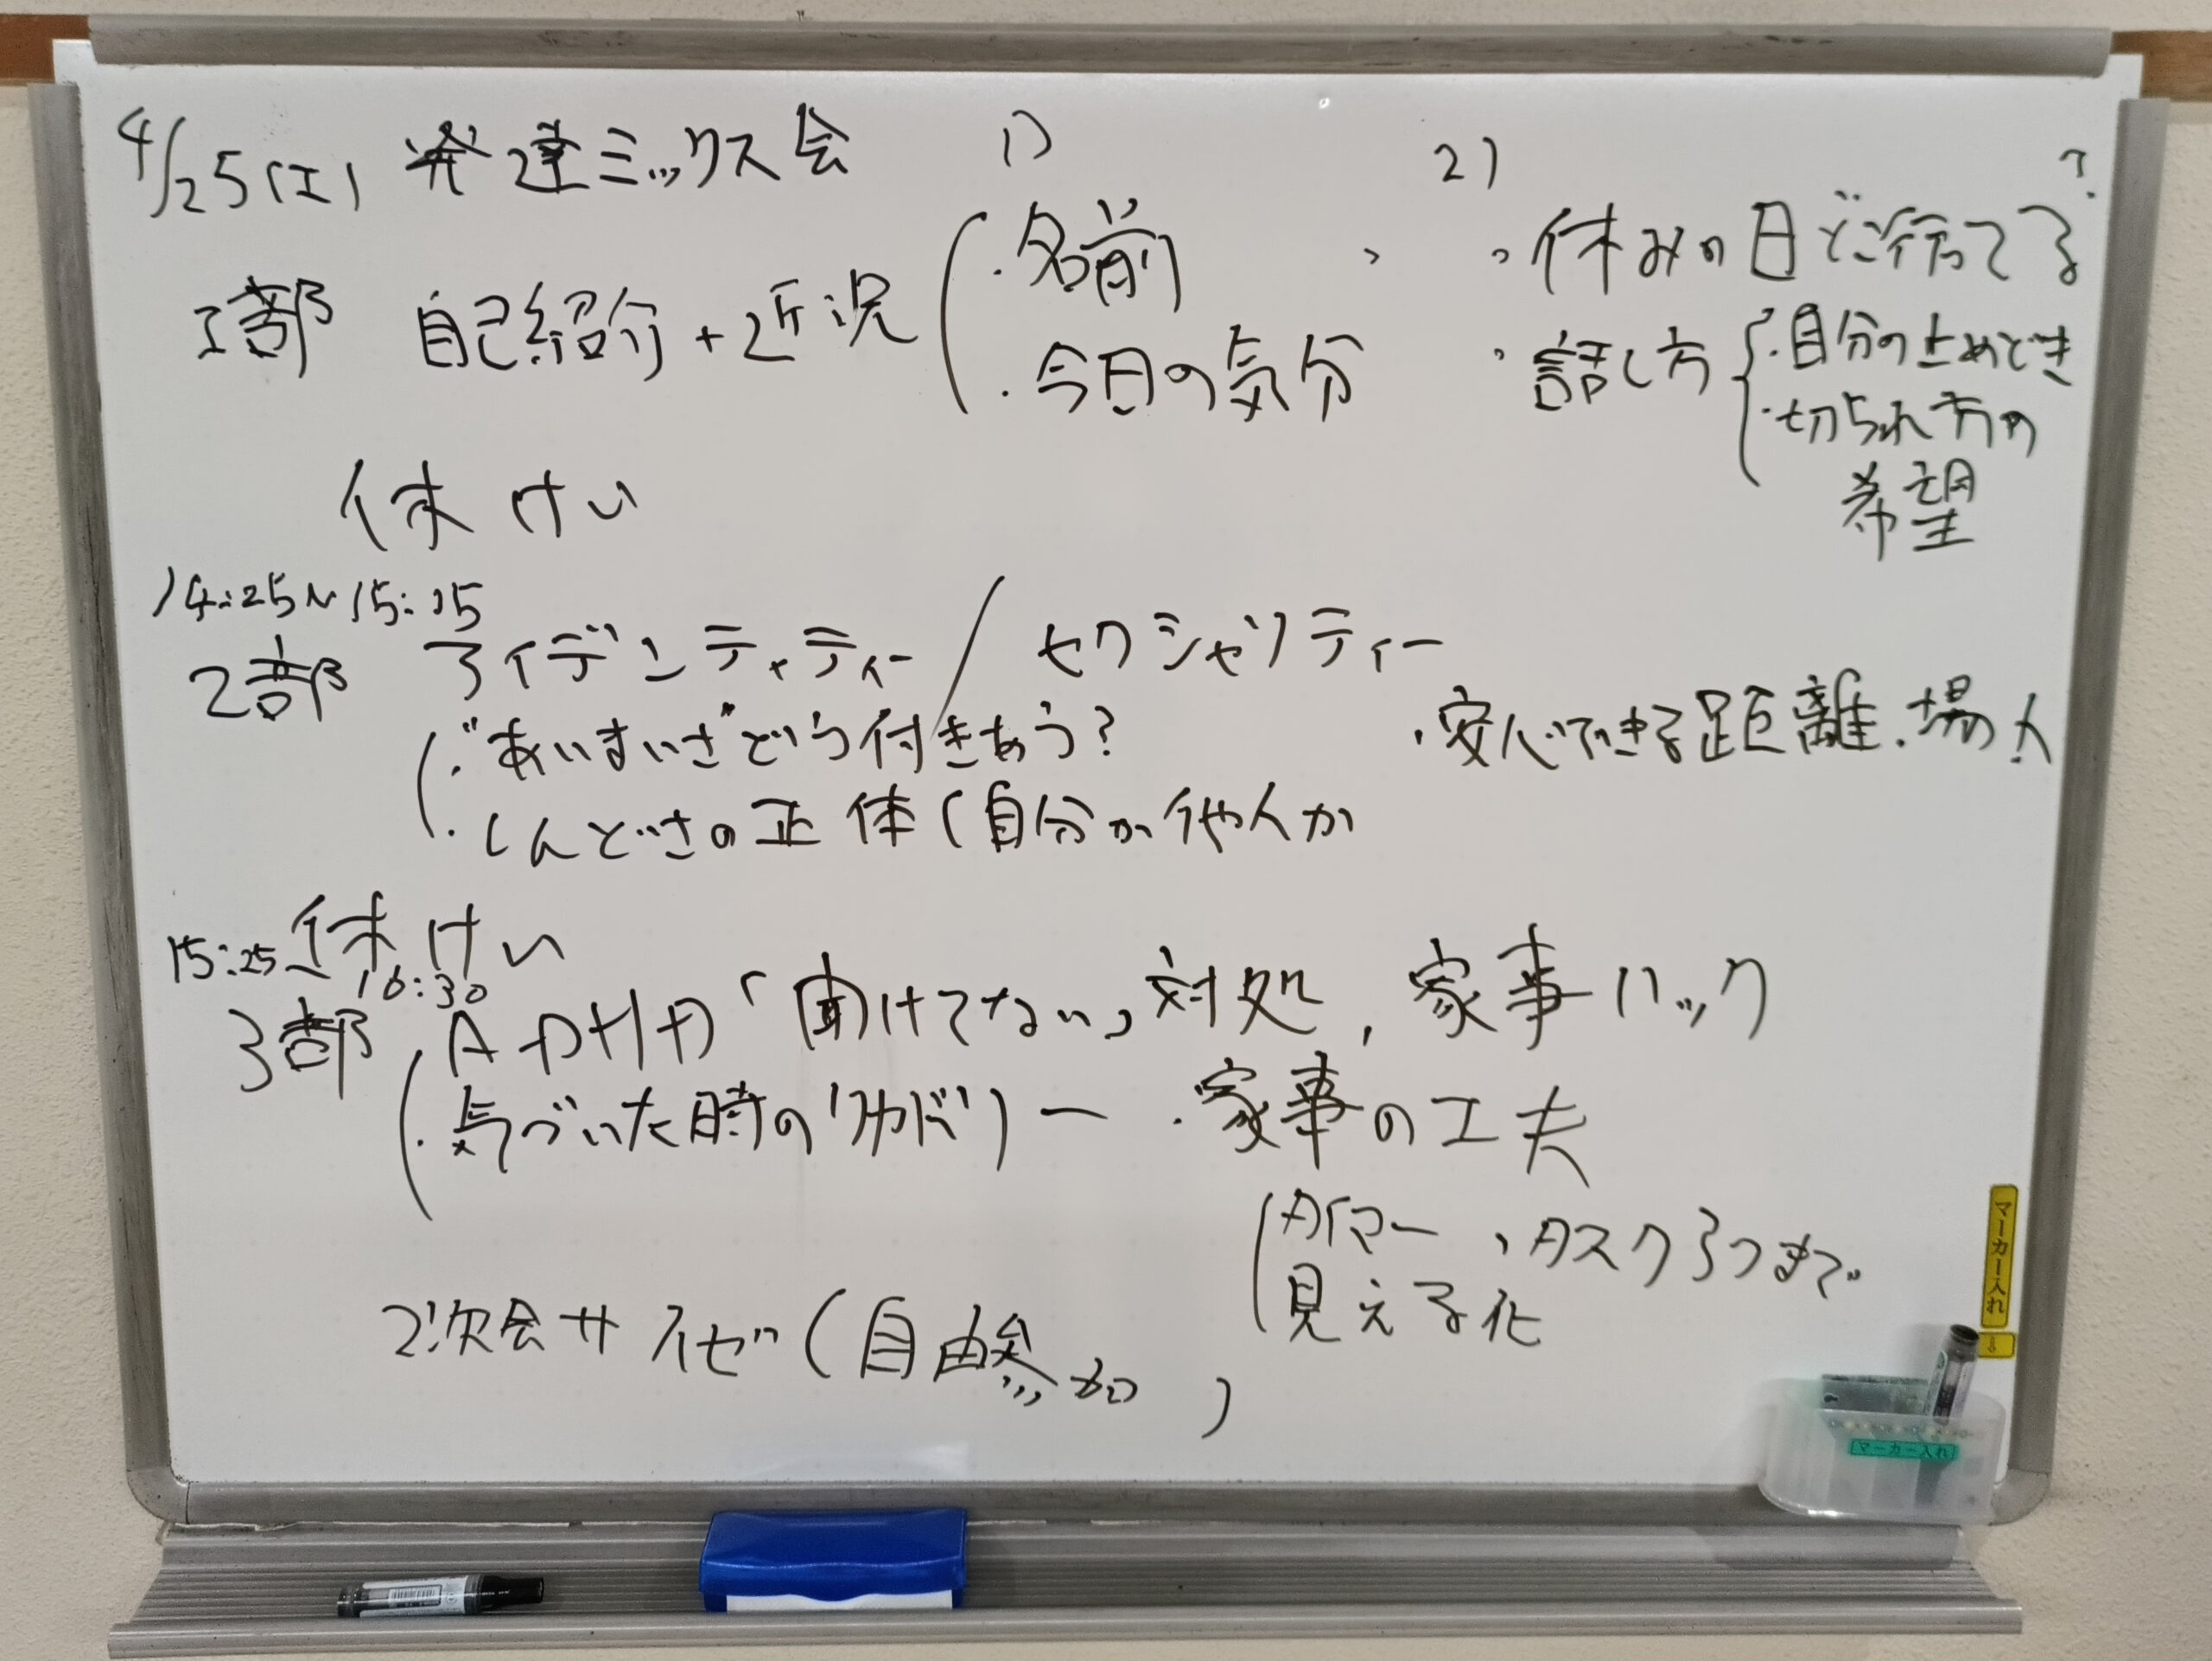 4/25(土) 発達ミックス会
1部 自己紹介+近況
1)
・名前
・今日の気分
2)
・休みの日どこ行ってる?
・話し方
・自分の止めどき
・切られ方の
希望
休けい
14:25〜15:15
2部 アイデンティティー/セクシャリティー
・"あいまいさ"どう付きあう?
・しんどさの正体(自分か他人か
・安心できる距離・場・人
休けい
15:25〜16:30
3部 ADHD「聞けてない」対処,家事ハック
・気づいた時のリカバリー
・家事の工夫
タイマー、タスク3つまで
見える化
2次会サイゼ(自由参加)
マーカー入れ
⇩
マーカー入れ